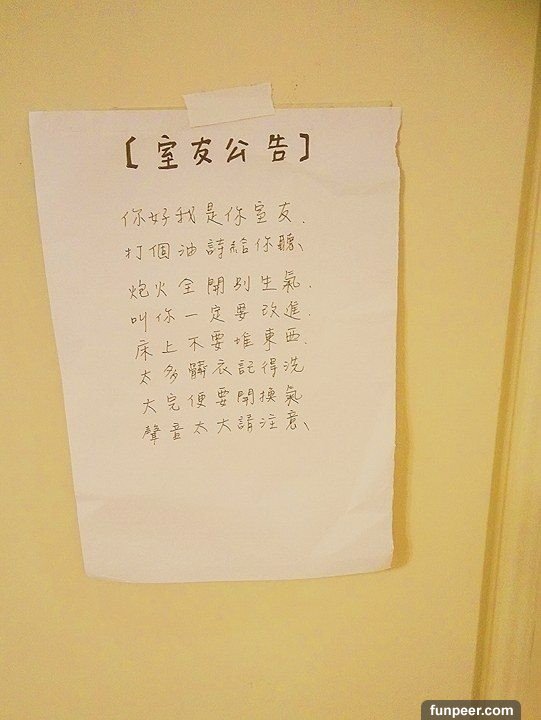 [室友公告]
你好我是你室友.
打個油詩給你聽、
炮火全開別生氣.
叫你一定要改進.
床上不要堆東西.
太多髒衣記得洗
大完便要開換氣
聲音太大請注意、
funpeer.com